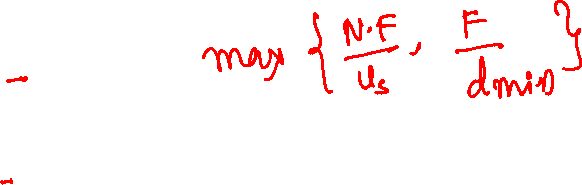 max { N.F / us , F / dmin }